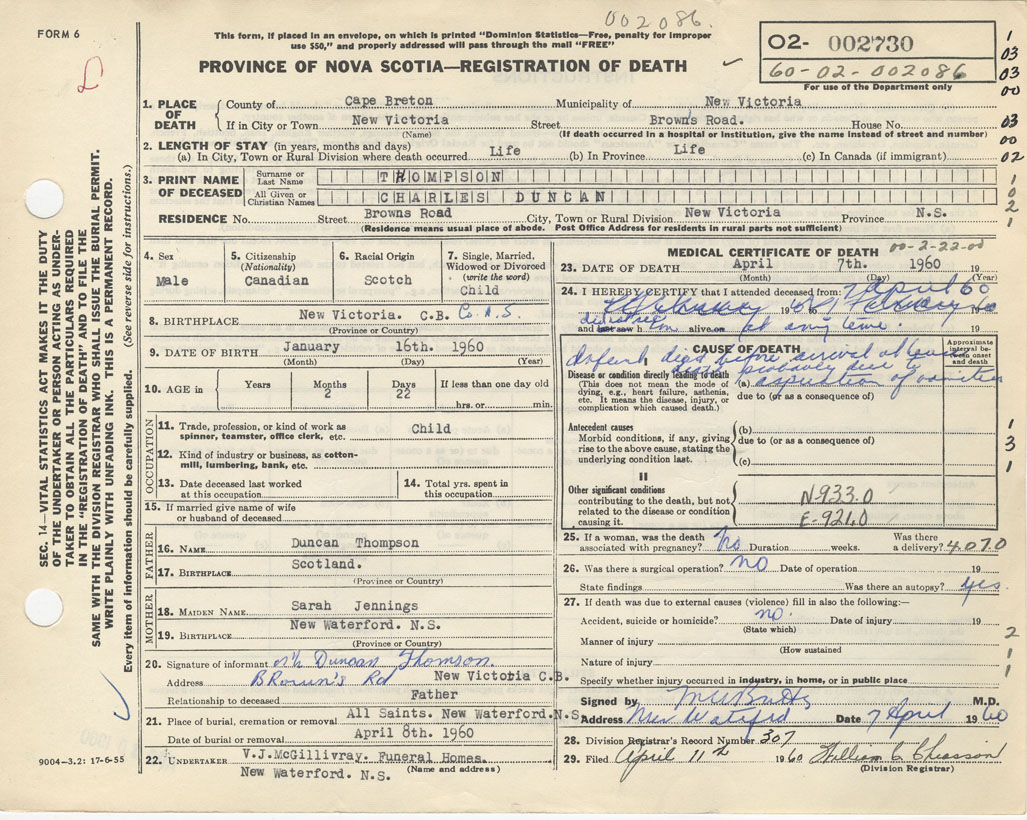 002086.
FORM 6
This form, if placed in an envelope, on which is printed "Dominion Statistics—Free, penalty for improper
use $50," and properly addressed will pass through the mail "FREE"
PROVINCE OF NOVA SCOTIA—REGISTRATION OF DEATH
02- 002730
60-02-002086
For use of the Department only
1
03
03
00
03
00
02
1
0
2
1
1. PLACE OF DEATH
County of Cape Breton Municipality of New Victoria
If in City or Town New Victoria Street Browns Road. House No.
(Name) (If death occurred in a hospital or institution, give the name instead of street and number)
2. LENGTH OF STAY (in years, months and days)
(a) In City, Town or Rural Division where death occurred Life (b) In Province Life (c) In Canada (if immigrant)
3. PRINT NAME OF DECEASED
Surname or Last Name THOMPSON
All Given or Christian Names CHARLES DUNCAN
RESIDENCE No. Street Browns Road City, Town or Rural Division New Victoria Province N.S.
(Residence means usual place of abode. Post Office Address for residents in rural parts not sufficient)
4. Sex
Male
5. Citizenship
(Nationality)
Canadian
6. Racial Origin
Scotch
7. Single, Married,
Widowed or Divorced
(write the word)
Child
8. BIRTHPLACE New Victoria. C.B. Co. N.S.
(Province or Country)
9. DATE OF BIRTH January 16th. 1960
(Month) (Day) (Year)
10. AGE in
Years Months Days If less than one day old
2 22
hrs. or min.
OCCUPATION
11. Trade, profession, or kind of work as
spinner, teamster, office clerk, etc. Child
12. Kind of industry or business, as cotton-
mill, lumbering, bank, etc.
13. Date deceased last worked
at this occupation
14. Total yrs. spent in
this occupation
15. If married give name of wife
or husband of deceased
FATHER
16. NAME Duncan Thompson
17. BIRTHPLACE Scotland.
(Province or Country)
MOTHER
18. MAIDEN NAME Sarah Jennings
19. BIRTHPLACE New Waterford. N.S.
(Province or Country)
20. Signature of informant Mr Duncan Thomson.
Address Brown's Rd New Victoria C.B.
Relationship to deceased Father
21. Place of burial, cremation or removal All Saints. New Waterford.N.S.
Date of burial or removal April 8th. 1960
22. UNDERTAKER V.J.McGillivray. Funeral Homes.
(Name and address)
New Waterford. N.S.
MEDICAL CERTIFICATE OF DEATH
00-2-22-00
23. DATE OF DEATH April 7th. 1960 19
(Month) (Day) (Year)
24. I HEREBY CERTIFY that I attended deceased from: 7 April 60
19 to 19
and last saw h alive on at any time. 19
CAUSE OF DEATH
Approximate
interval be-
tween onset
and death
Infant died before arrival at
I
probably due to
Disease or condition directly leading to death
(This does not mean the mode of
dying, e.g., heart failure, asthenia,
etc. It means the disease, injury, or
complication which caused death.)
(a) aspiration of vomitus
due to (or as a consequence of)
Antecedent causes
Morbid conditions, if any, giving
rise to the above cause, stating the
underlying condition last.
(b)
due to (or as a consequence of)
(c)
1
3
1
II
Other significant conditions
contributing to the death, but not
related to the disease or condition
causing it.
N-933.0
E-921.0
25. If a woman, was the death
associated with pregnancy? No Duration weeks. Was there
a delivery? 4070
26. Was there a surgical operation? No Date of operation 19
State findings Was there an autopsy? yes
27. If death was due to external causes (violence) fill in also the following:—
Accident, suicide or homicide? no. Date of injury 19
(State which)
Manner of injury
(How sustained
Nature of injury
Specify whether injury occurred in industry, in home, or in public place
2
1
1
Signed by M.D.
Address New Waterford Date 7 April 1960
28. Division Registrar's Record Number 307
29. Filed April 11th 1960 William C Chiasson
(Division Registrar)
SEC. 14—VITAL STATISTICS ACT MAKES IT THE DUTY
OF THE UNDERTAKER OR PERSON ACTING AS UNDER-
TAKER TO OBTAIN ALL THE PARTICULARS REQUIRED
IN THE "REGISTRATION OF DEATH" AND TO FILE THE
SAME WITH THE DIVISION REGISTRAR WHO SHALL ISSUE THE BURIAL PERMIT.
WRITE PLAINLY WITH UNFADING INK. THIS IS A PERMANENT RECORD.
Every item of information should be carefully supplied. (See reverse side for instructions.)
9004-3.2: 17-6-55